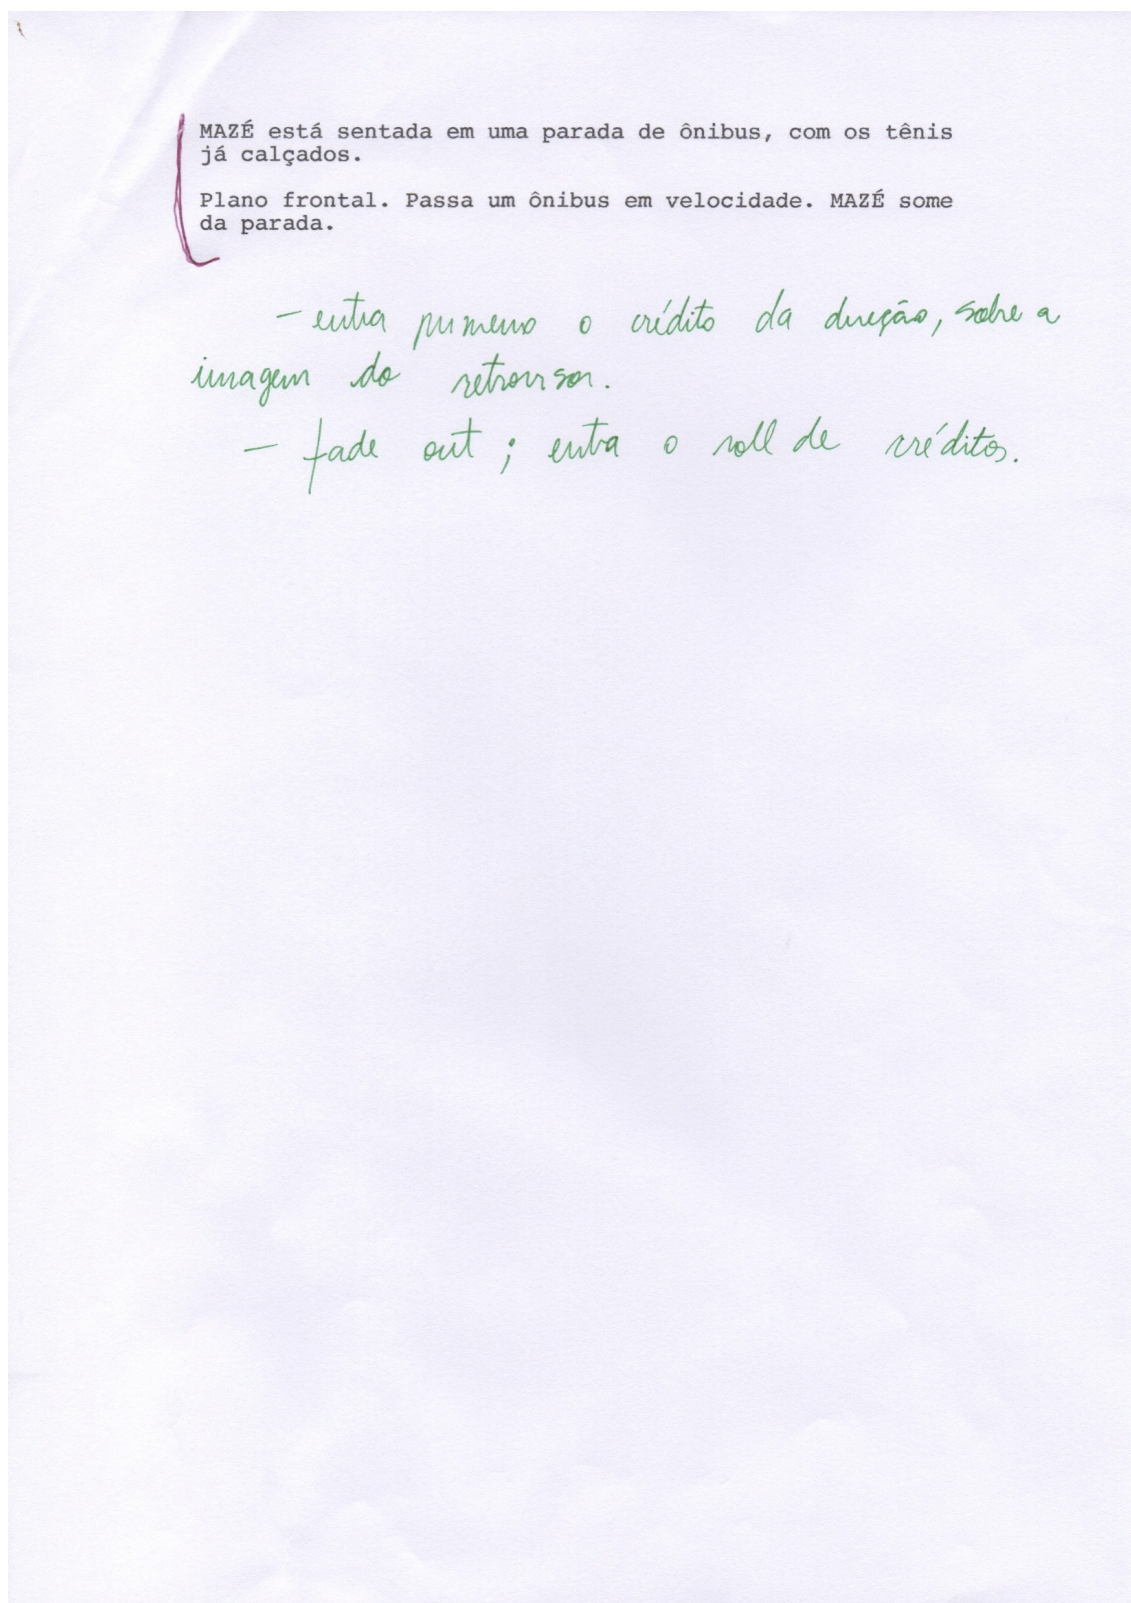 MAZÉ está sentada em uma parada de ônibus, com os tênis
já calçados.
Plano frontal. Passa um ônibus em velocidade. MAZÉ some
da parada.
- entra primeiro o crédito da direção, sobre a
imagem do retrovisor.
- fade out; entra o roll de créditos.